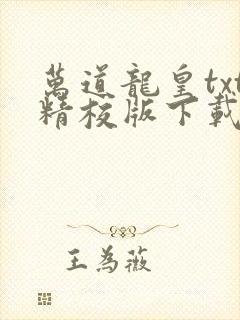 萬道龍皇txt
精校版下載
王為薇